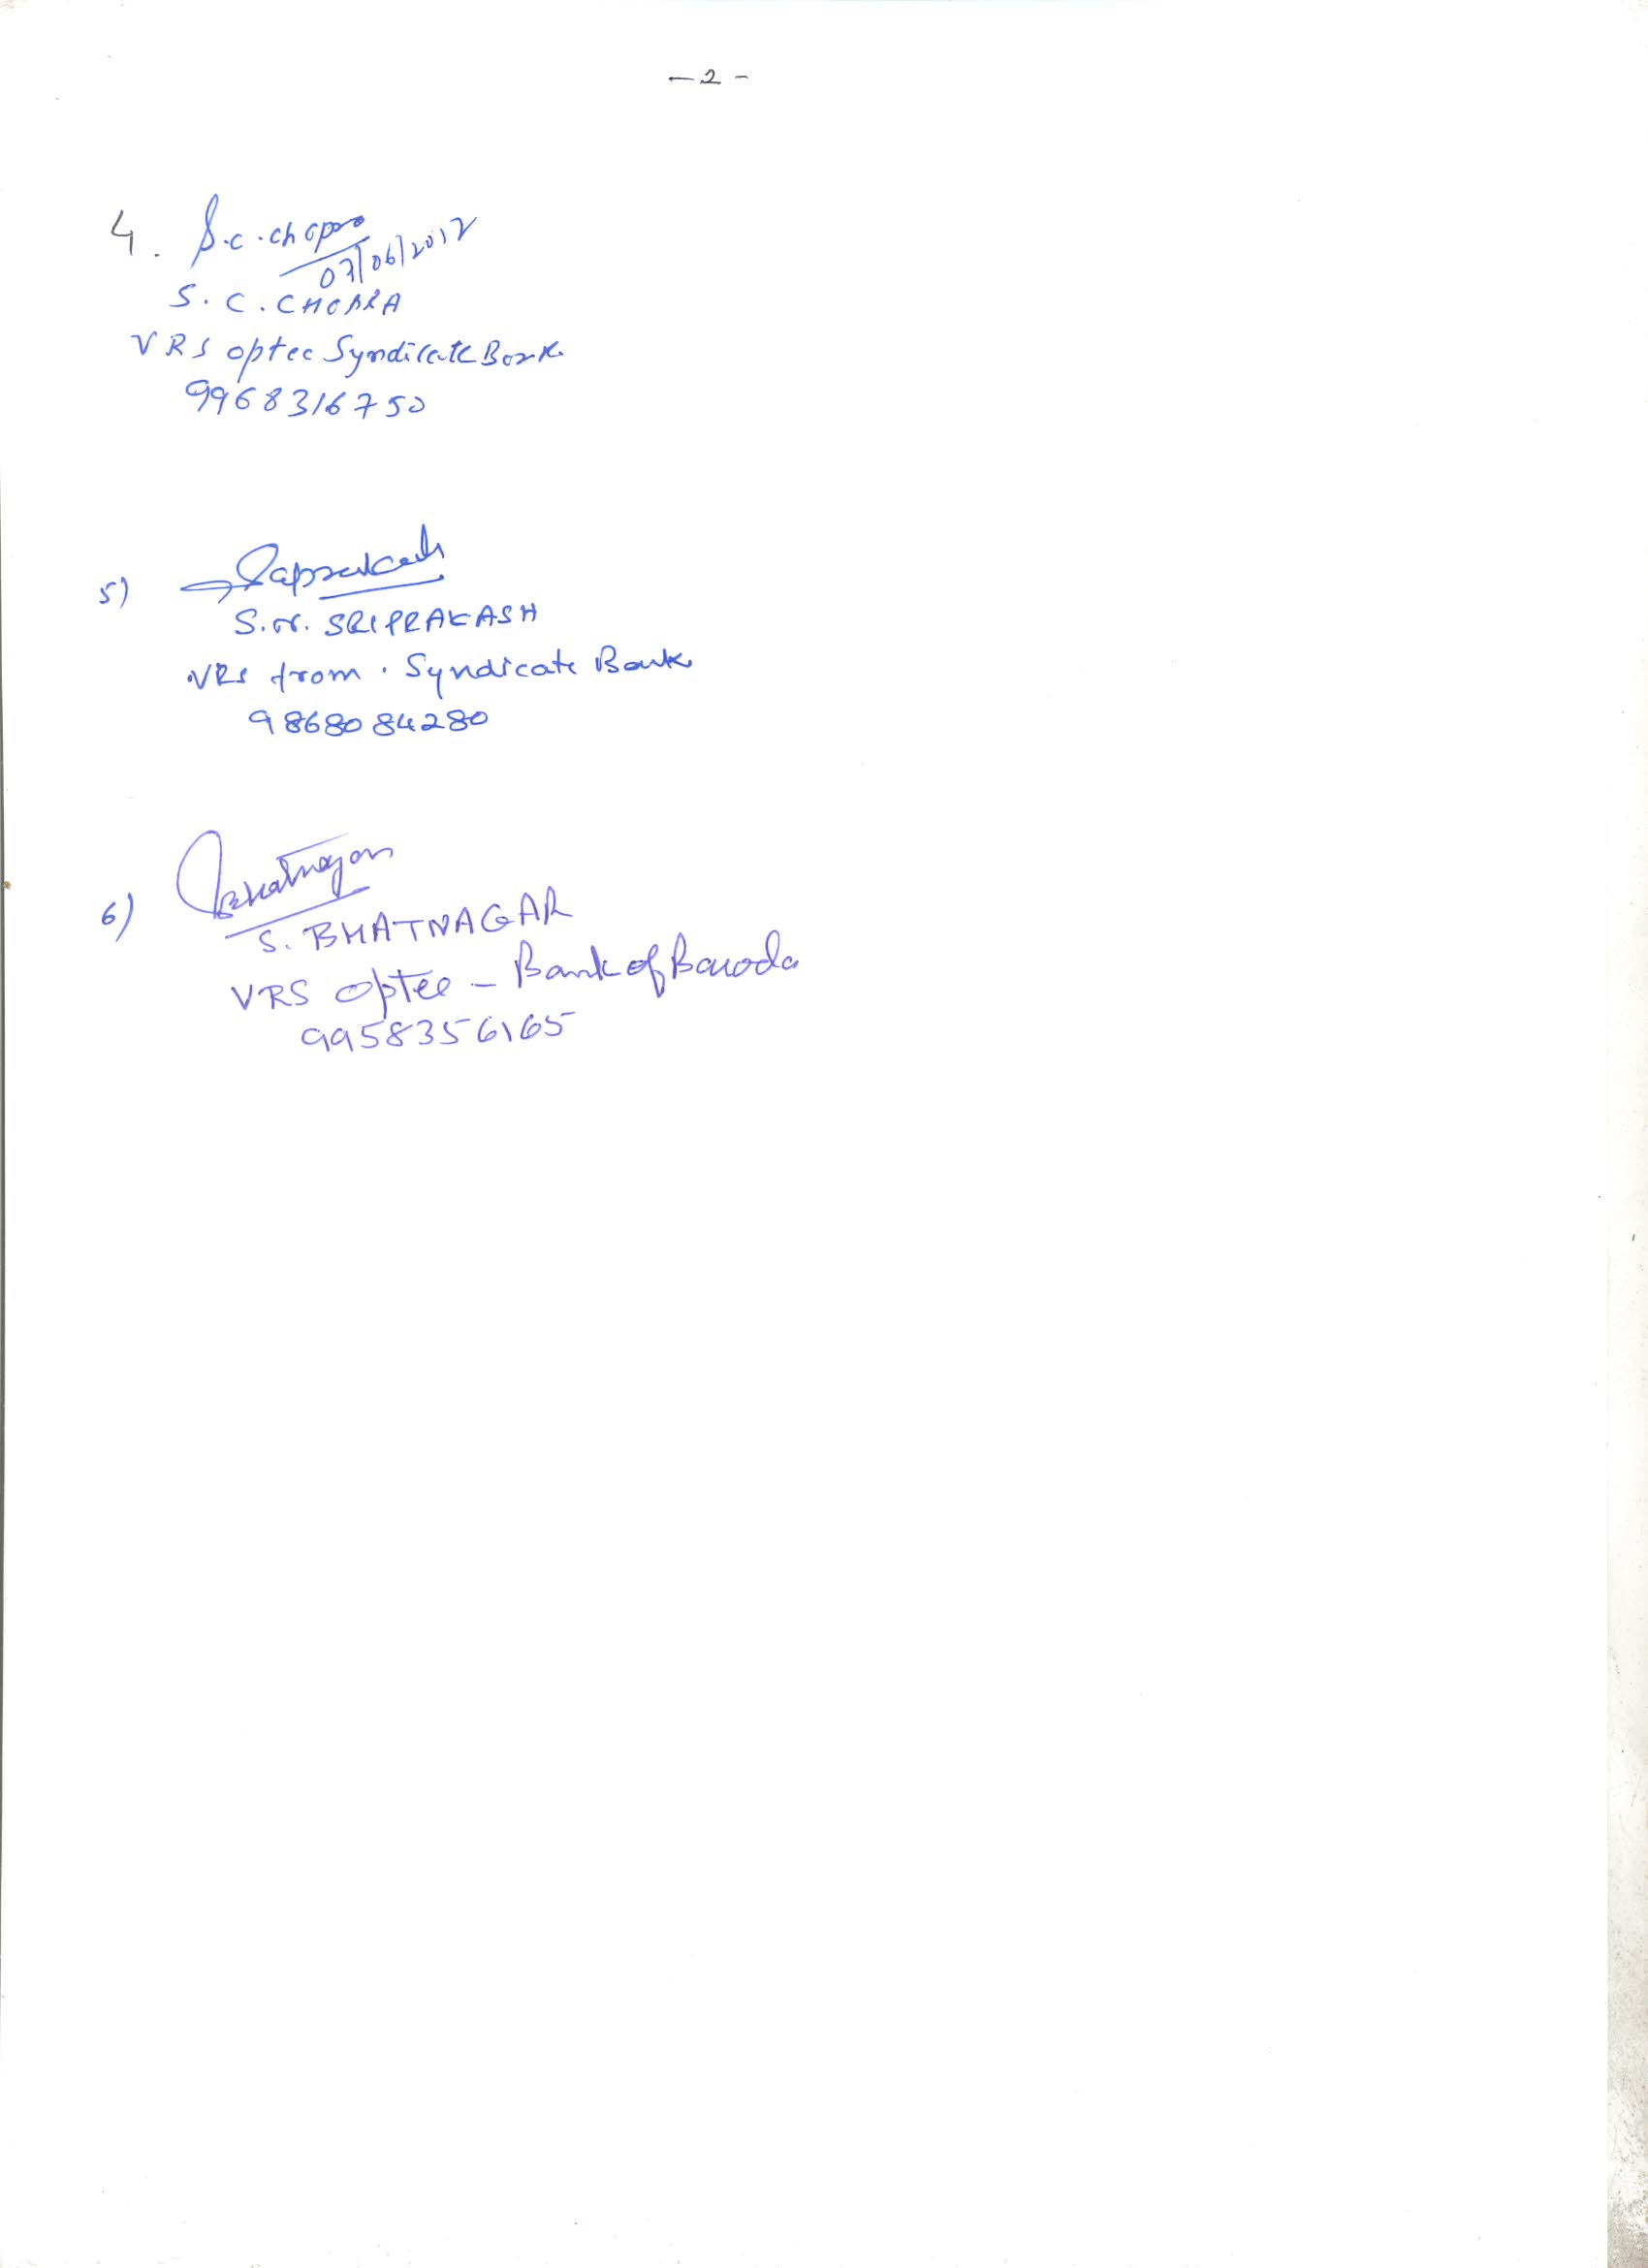 - 2 -
4. S.c. chopra
07/06/2012
S. C. CHOPRA
VRS optee Syndicate Bank
9968316750
5)
S.N. SRIPRAKASH
VRS from . Syndicate Bank
9868084280
6) Bhatnagar
S. BHATNAGAR
VRS optee - Bank of Baroda
9958356165